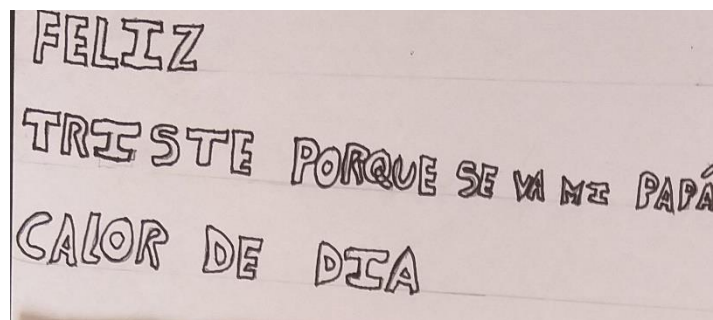 FELIZ
TRISTE PORQUE SE VA MI PAPÁ
CALOR DE DIA